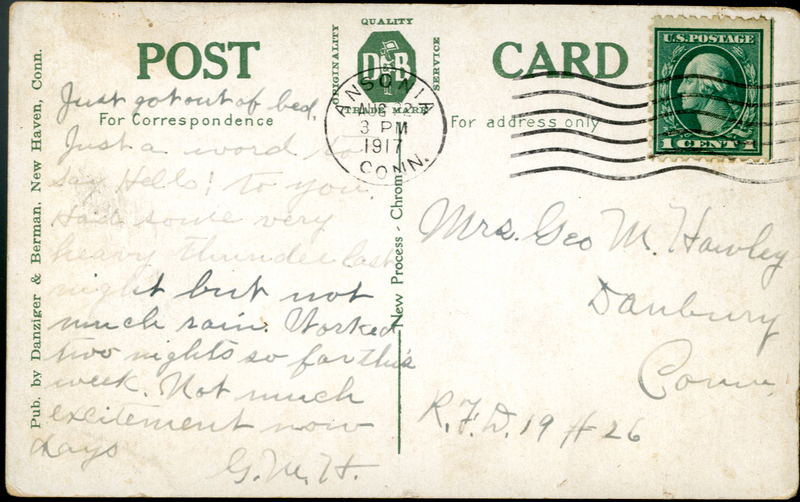 POST CARD
QUALITY
ORIGINALITY
SERVICE
D B
TRADE MARK
For Correspondence
For address only
U.S. POSTAGE
1 CENT 1
ANSONIA
AUG 22
3 PM
1917
CONN.
Pub. by Danziger & Berman, New Haven, Conn.
New Process - Chrom
Just got out of bed,
Just a word to
say Hello! to you.
Had some very
heavy thunder last
night but not
much rain. Worked
two nights so far this
week. Not much
excitement now
days
G.M.H.
Mrs. Geo M. Hawley
Danbury
Conn.
R.F.D. 19 # 26